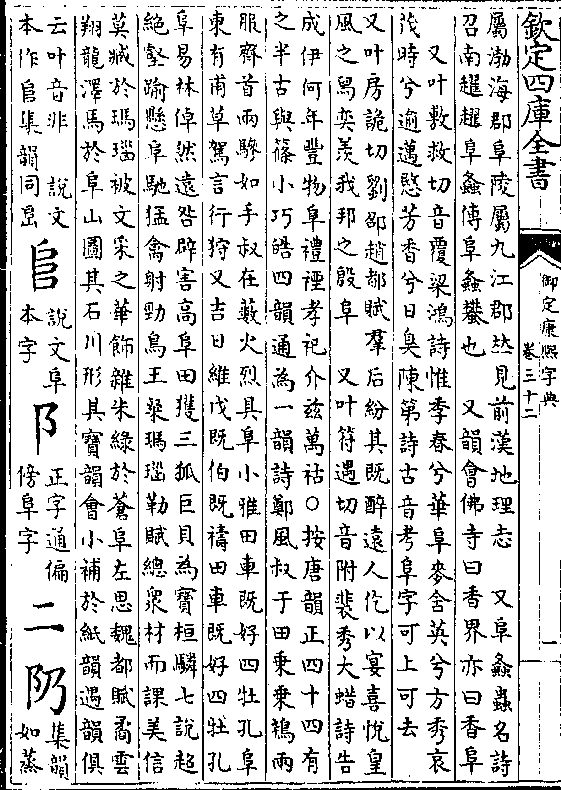 欽定四庫全書
御定康熙字典
卷三十二
一
屬渤海郡阜陵屬九江郡𠀤見前漢地理志 又阜螽蟲名詩
召南趯趯阜螽傳阜螽蠜也 又韻會佛寺曰香界亦曰香阜
又叶敷救切音覆梁鴻詩惟季春兮華阜麥含英兮方秀哀
茂時兮逾邁愍芳香兮日臭陳第詩古音考阜字可上可去
又叶房詭切劉邵趙都賦羣后紛其既醉遠人仡以宴喜悅皇
風之舄奕羡我邦之殷阜 又叶符遇切音附裴秀大蜡詩告
成伊何年豐物阜禮禋孝祀介兹萬祜○按唐韻正四十四有
之半古與篠小巧皓四韻通為一韻詩鄭風叔于田乘乘鴇兩
服齊首兩驂如手叔在藪火烈具阜小雅田車既好四牡孔阜
東有甫草駕言行狩又吉日維戊既伯既禱田車既好四牡孔
阜易林倬然遠咎辟害高阜田獲三狐巨貝為寶桓驎七說超
絶壑踰懸阜馳猛禽射勁鳥王粲瑪瑙勒賦總衆材而課美信
莫臧於瑪瑙被文采之華飾雜朱緑於蒼阜左思魏都賦矞雲
翔龍澤馬於阜山圖其石川形其寶韻會小補於紙韻遇韻俱
云叶音非 說文
本作𨸏集韻同峊
𨸏
說文阜
本字
阝
正字通偏
傍阜字
二
阞
集韻
如蒸